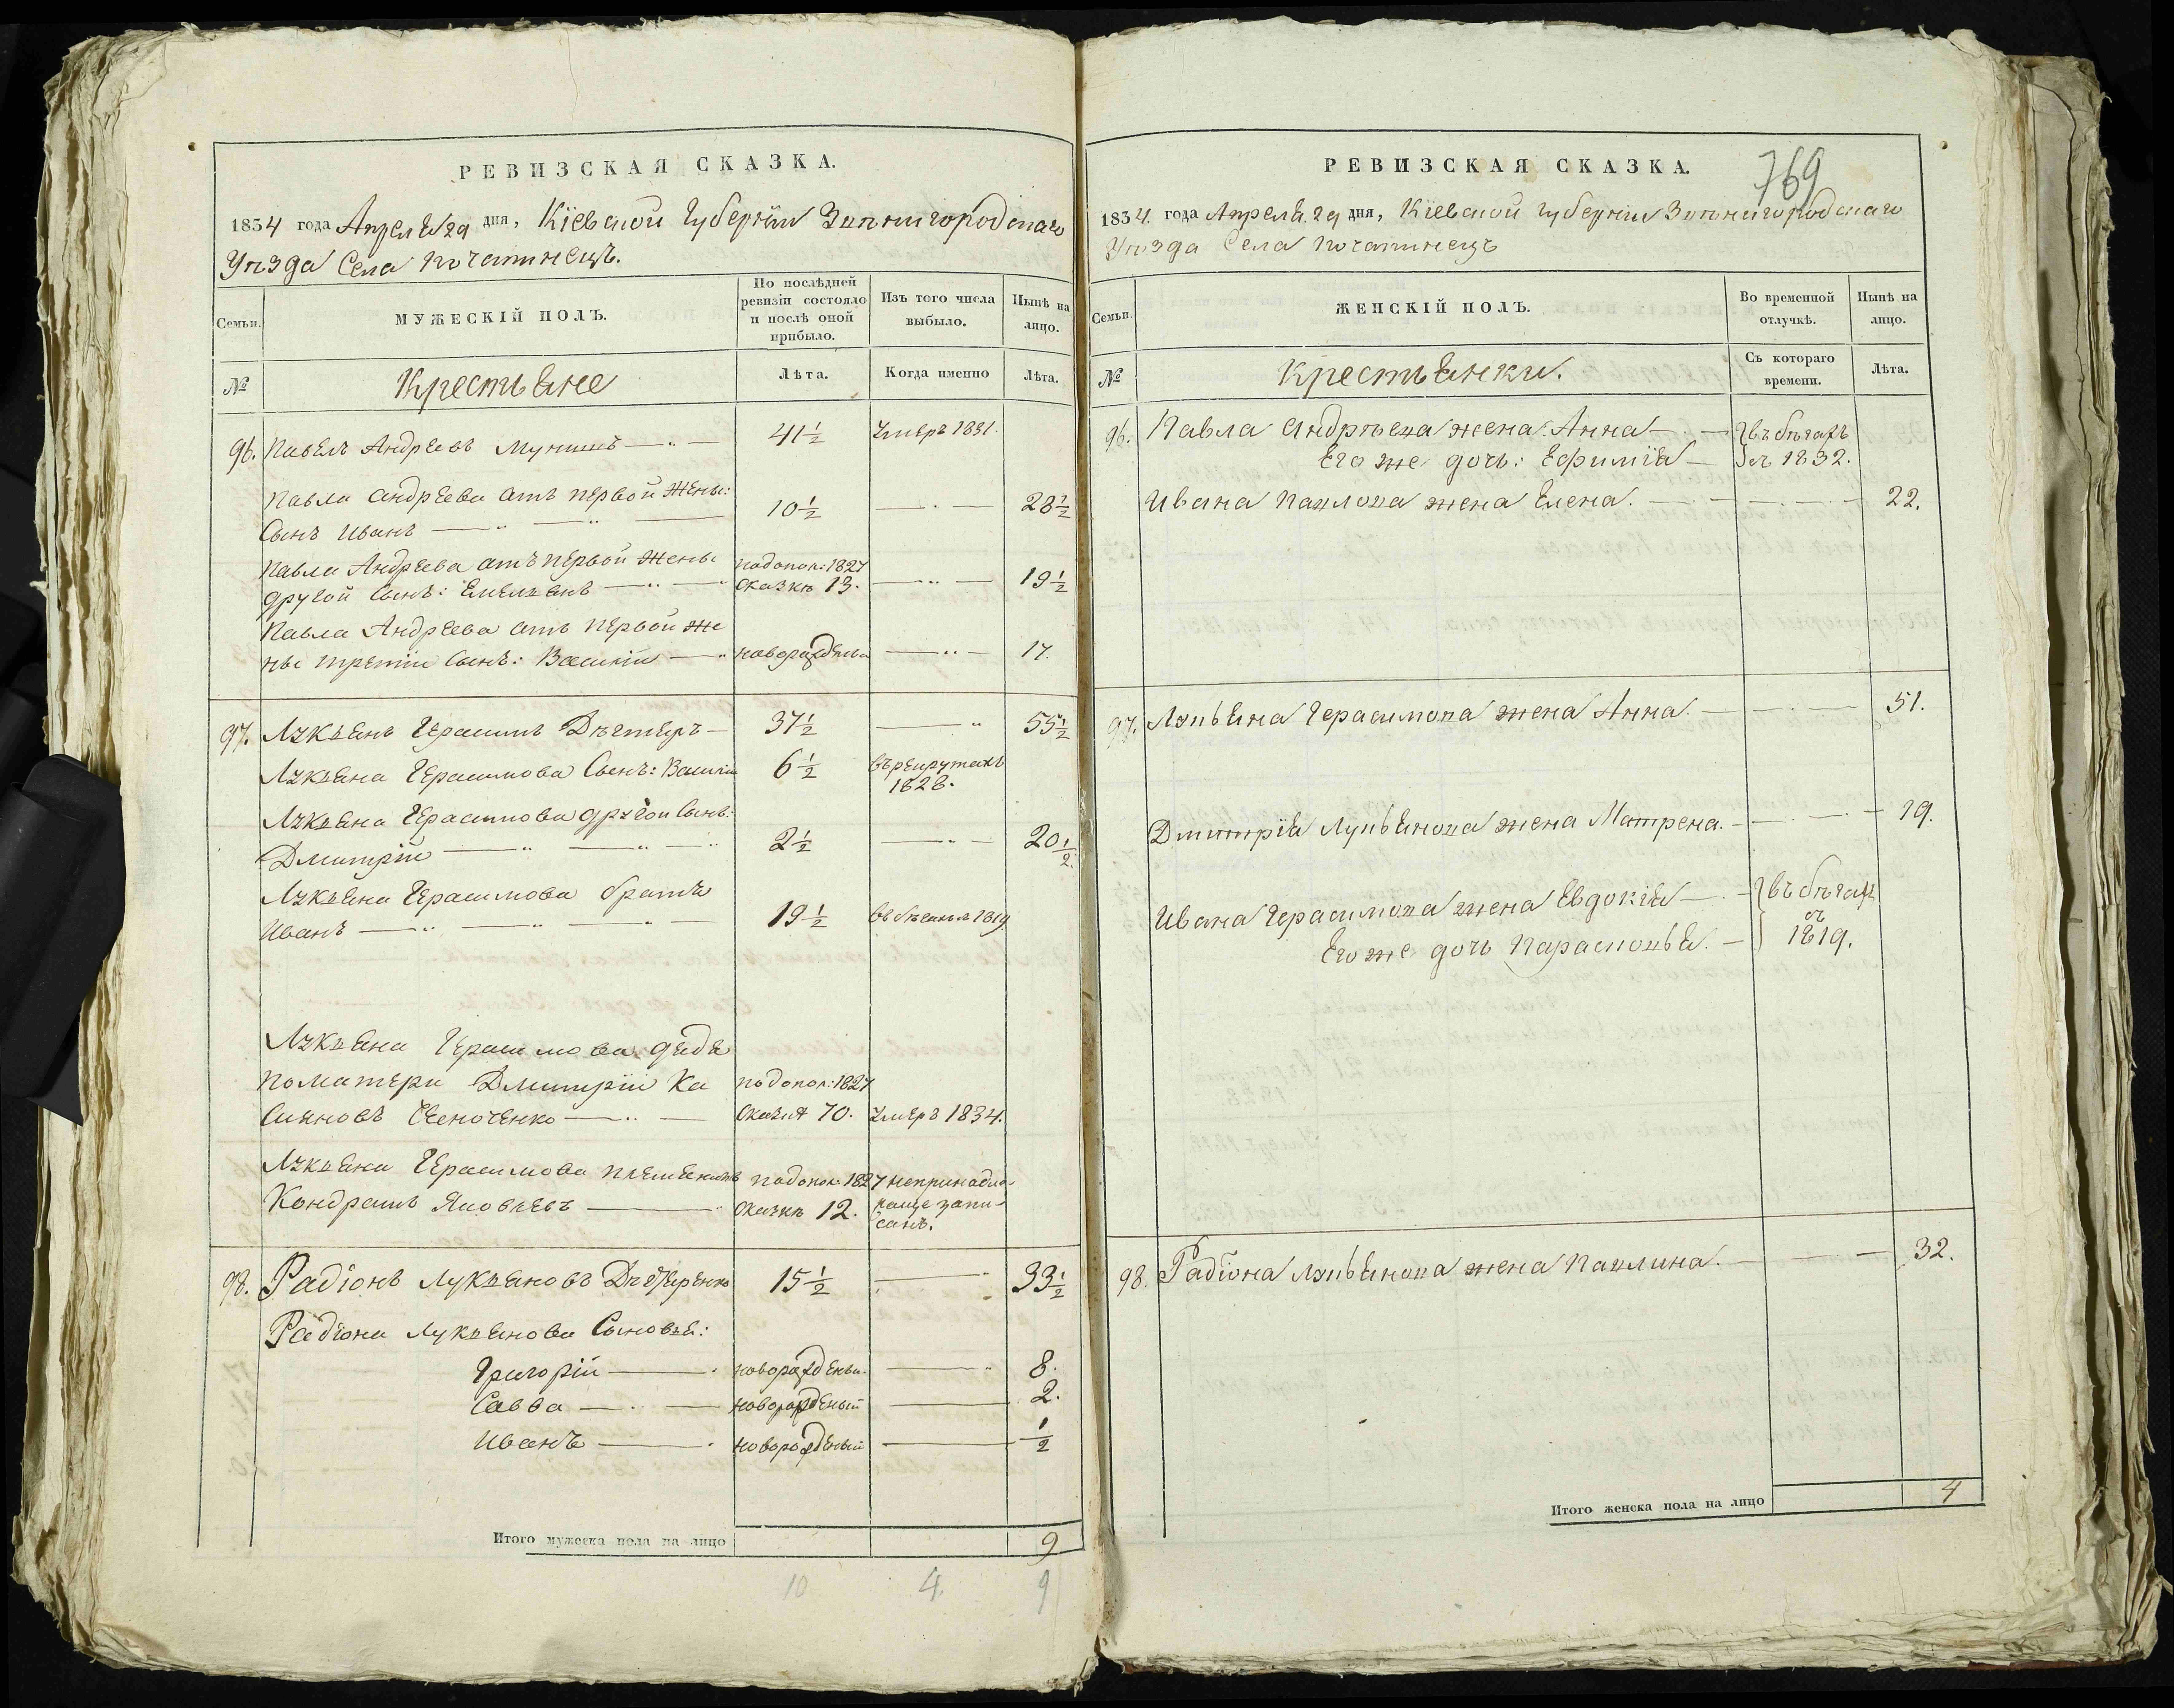 РЕВИЗСКАЯ СКАЗКА.
1834 года Апреля 29 дня, Кіевской Губерніи Звенигородскаго
Уѣзда Села Почапинецъ.
Семьи.
МУЖЕСКІЙ ПОЛЪ.
По послѣдней ревизіи состояло и послѣ оной прибыло.
Изъ того числа выбыло.
Нынѣ на лицо.
№
Крестьяне
Лѣта.
Когда именно
Лѣта.
96. Павелъ Андреевъ 41 1/2 умеръ 1831.
Павла Андреева отъ первой жены:
Сынъ Иванъ 10 1/2 28 1/2
Павла Андреева отъ первой жены по допол: 1827
другой Сынъ: Емельянъ сказкѣ 13. 19 1/2
Павла Андреева отъ первой же
ны третій Сынъ: Василій 17.
97. Лукьянъ Герасимъ 37 1/2 55 1/2
Лукьяна Герасимова Сынъ: Василій 6 1/2 въ рекрутахъ
1828.
Лукьяна Герасимова другой Сынъ:
Дмитрій 2 1/2 20 1/2
Лукьяна Герасимова братъ
Иванъ 19 1/2 въ бѣгахъ 1819
Лукьяна Герасимова дядя
по матери Дмитрій Ка по допол: 1827
сказкѣ 70. умеръ 1834.
Лукьяна Герасимова племянникъ по допол: 1827 непринадле-
Кондратъ Яковлевъ сказкѣ 12. жаще запи-
санъ.
98. Радіонъ Лукьяновъ 15 1/2 33 1/2
Радіона Лукьянова Сыновья:
Григорій 8.
Савва новорожденый 2.
Иванъ новорожденый 1/2
Итого мужеска пола на лицо 9
10 4 9
РЕВИЗСКАЯ СКАЗКА.
769
1834. года Апреля 29 дня, Кіевской Губерніи Звенигородскаго
Уѣзда Села Почапинецъ
Семьи.
ЖЕНСКІЙ ПОЛЪ.
Во временной отлучкѣ.
Нынѣ на лицо.
№
Крестьянки.
Съ котораго времени.
Лѣта.
96. Павла Андрѣева жена: Анна въ бѣгахъ
Его же дочь: Ефимія съ 1832.
Ивана Павлова жена Елена. 22.
97. Лукьяна Герасимова жена Анна. 51.
Дмитрія Лукьянова жена Матрена. 19.
Ивана Герасимова жена Евдокія въ бѣгах
съ
Его же дочь Парасковья. 1819.
98. Радіона Лукьянова жена Павлина. 32.
Итого женска пола на лицо 4